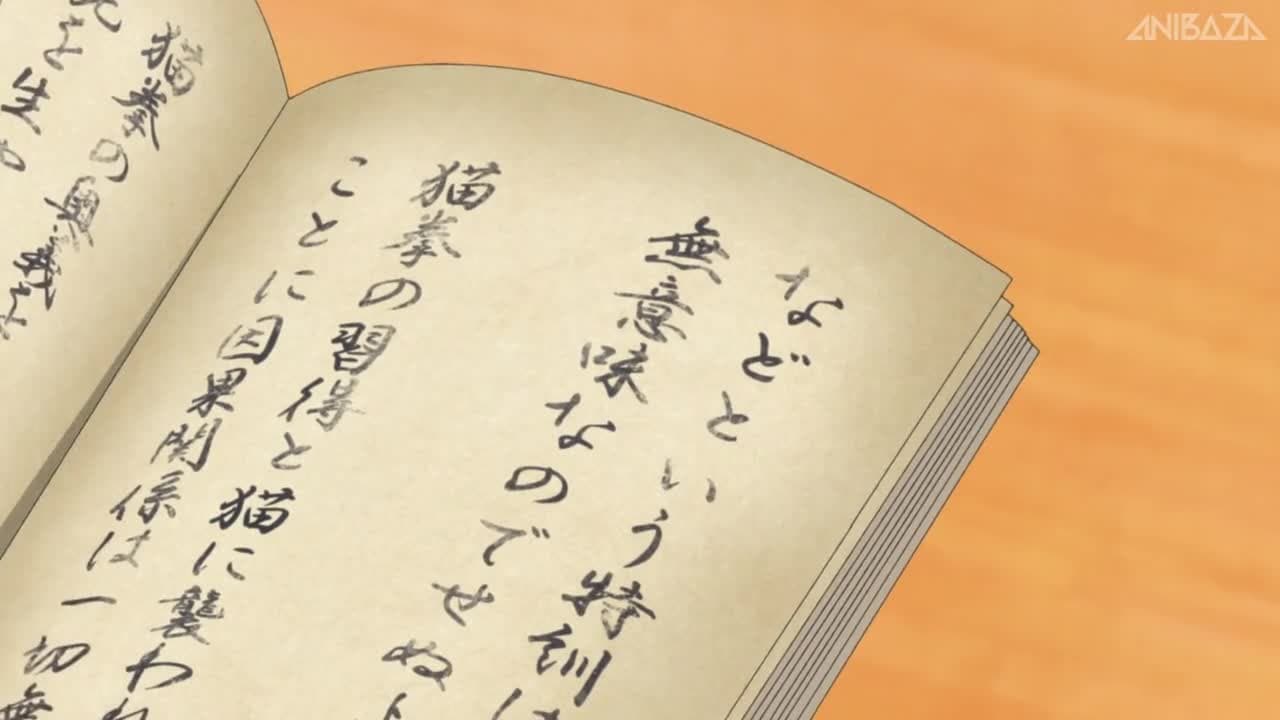 などという特訓は
無意味なのでせぬよ
猫拳の習得と猫に襲われ
ことに因果関係は一切無
猫拳の奥義を
を生
ANIBAZA